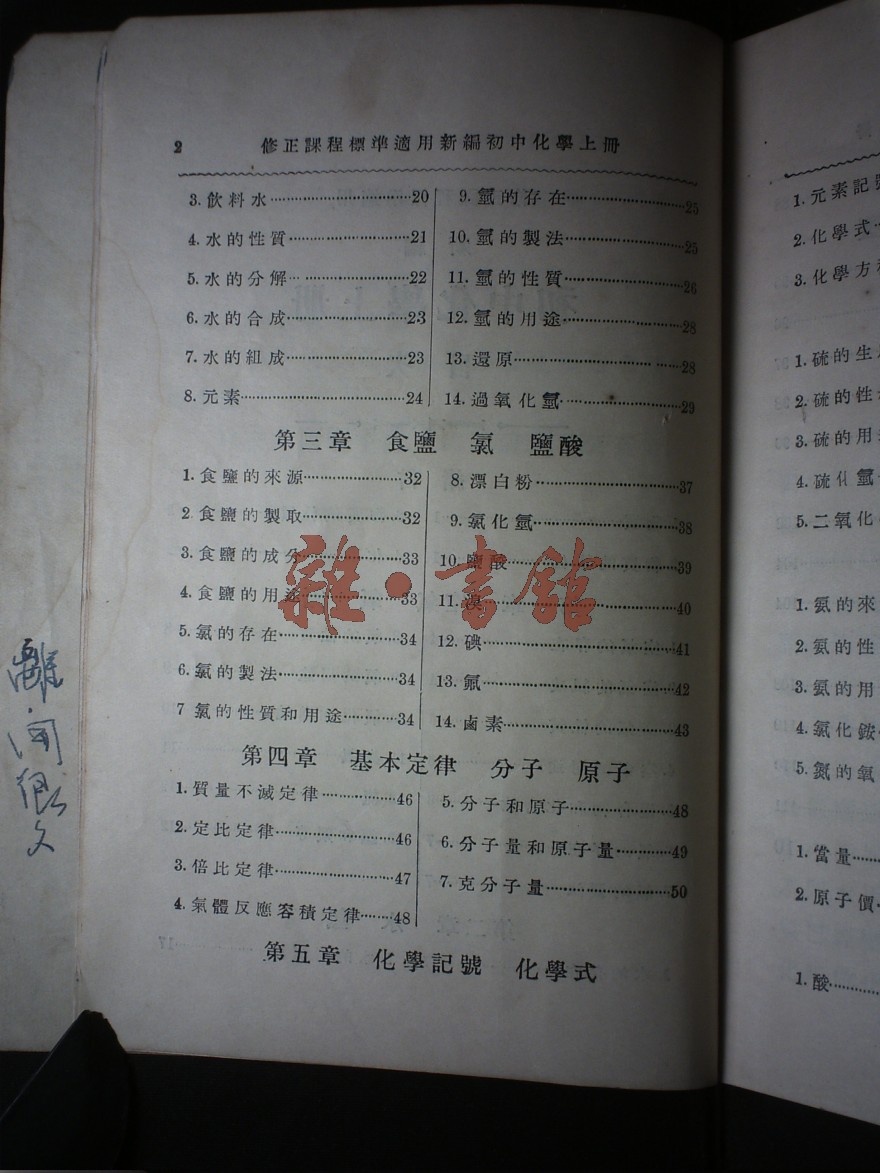 2 修正課程標準適用新編初中化學上冊
3. 飲料水………20
4. 水的性質………21
5. 水的分解………22
6. 水的合成………23
7. 水的組成………23
8. 元素………24
9. 氫的存在………25
10. 氫的製法………25
11. 氫的性質………26
12. 氫的用途………28
13. 還原………28
14. 過氧化氫………29
第三章 食鹽 氯 鹽酸
1. 食鹽的來源………32
2 食鹽的製取………32
3. 食鹽的成分………33
4. 食鹽的用途………33
5. 氯的存在………34
6. 氯的製法………34
7 氯的性質和用途………34
8. 漂白粉………37
9. 氯化氫………38
10. 鹽酸………39
11. 溴………40
12. 碘………41
13. 氟………42
14. 鹵素………43
第四章 基本定律 分子 原子
1. 質量不滅定律………46
2. 定比定律………46
3. 倍比定律………47
4. 氣體反應容積定律………48
5. 分子和原子………48
6. 分子量和原子量………49
7. 克分子量………50
第五章 化學記號 化學式
雜·書館
1. 元素記號
2. 化學式
3. 化學方
1. 硫的生
2. 硫的性
3. 硫的用
4. 硫化氫
5. 二氧化
1. 氨的來
2. 氨的性
3. 氨的用
4. 氯化銨
5. 氮的氧
1. 當量………
2. 原子價
1. 酸………